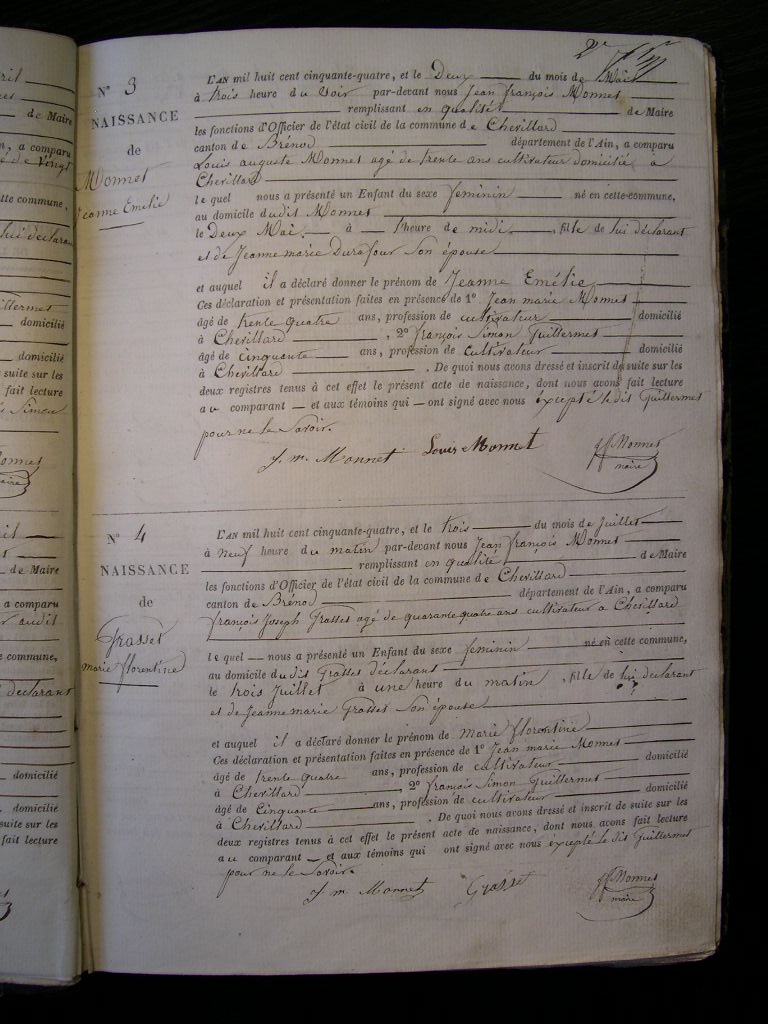 N° 3
NAISSANCE
de
Monnet
Jeanne Emelie
L'AN mil huit cent cinquante-quatre, et le Deux du mois de Mai
à trois heure du Soir par-devant nous Jean françois Monnet
remplissant en qualité de Maire
les fonctions d'Officier de l'état civil de la commune de Chevillard
canton de Brénod département de l'Ain, a comparu
Louis auguste Monnet agé de trente ans cultivateur domicilié a
Chevillard
le quel nous a présenté un Enfant du sexe feminin né en cette commune,
au domicile dudit Monnet
le Deux Mai à heure de midi, fille de lui déclarant
et de Jeanne marie Durafour Son épouse
et auquel il a déclaré donner le prénom de Jeanne Emélie
Ces déclaration et présentation faites en présence de 1° Jean marie Monnet
âgé de trente quatre ans, profession de cultivateur domicilié
à Chevillard, 2° françois Simon Guillermet
âgé de cinquante ans, profession de cultivateur domicilié
à Chevillard. De quoi nous avons dressé et inscrit de suite sur les
deux registres tenus à cet effet le présent acte de naissance, dont nous avons fait lecture
au comparant et aux témoins qui ont signé avec nous excepté le dit Guillermet
pour ne le Savoir.
J. m. Monnet Louis Monnet jf Monnet
maire
N° 4
NAISSANCE
de
Grasset
marie florentine
L'AN mil huit cent cinquante-quatre, et le trois du mois de Juillet
à neuf heure du matin par-devant nous Jean françois Monnet
remplissant en qualité de Maire
les fonctions d'Officier de l'état civil de la commune de Chevillard
canton de Brénod département de l'Ain, a comparu
françois Joseph Grasset agé de quarante quatre ans cultivateur a Chevillard
le quel nous a présenté un Enfant du sexe feminin né en cette commune,
au domicile dudit Grasset déclarant
le trois Juillet à une heure du matin, fille de lui declarant
et de Jeanne marie Grasset Son épouse
et auquel il a déclaré donner le prénom de Marie florentine
Ces déclaration et présentation faites en présence de 1° Jean marie Monnet
âgé de trente quatre ans, profession de cultivateur domicilié
à Chevillard, 2° françois Simon Guillermet
âgé de Cinquante ans, profession de cultivateur domicilié
à Chevillard. De quoi nous avons dressé et inscrit de suite sur les
deux registres tenus à cet effet le présent acte de naissance, dont nous avons fait lecture
au comparant et aux témoins qui ont signé avec nous excepté le dit Guillermet
pour ne le Savoir.
J. m. Monnet Grasset jf Monnet
maire